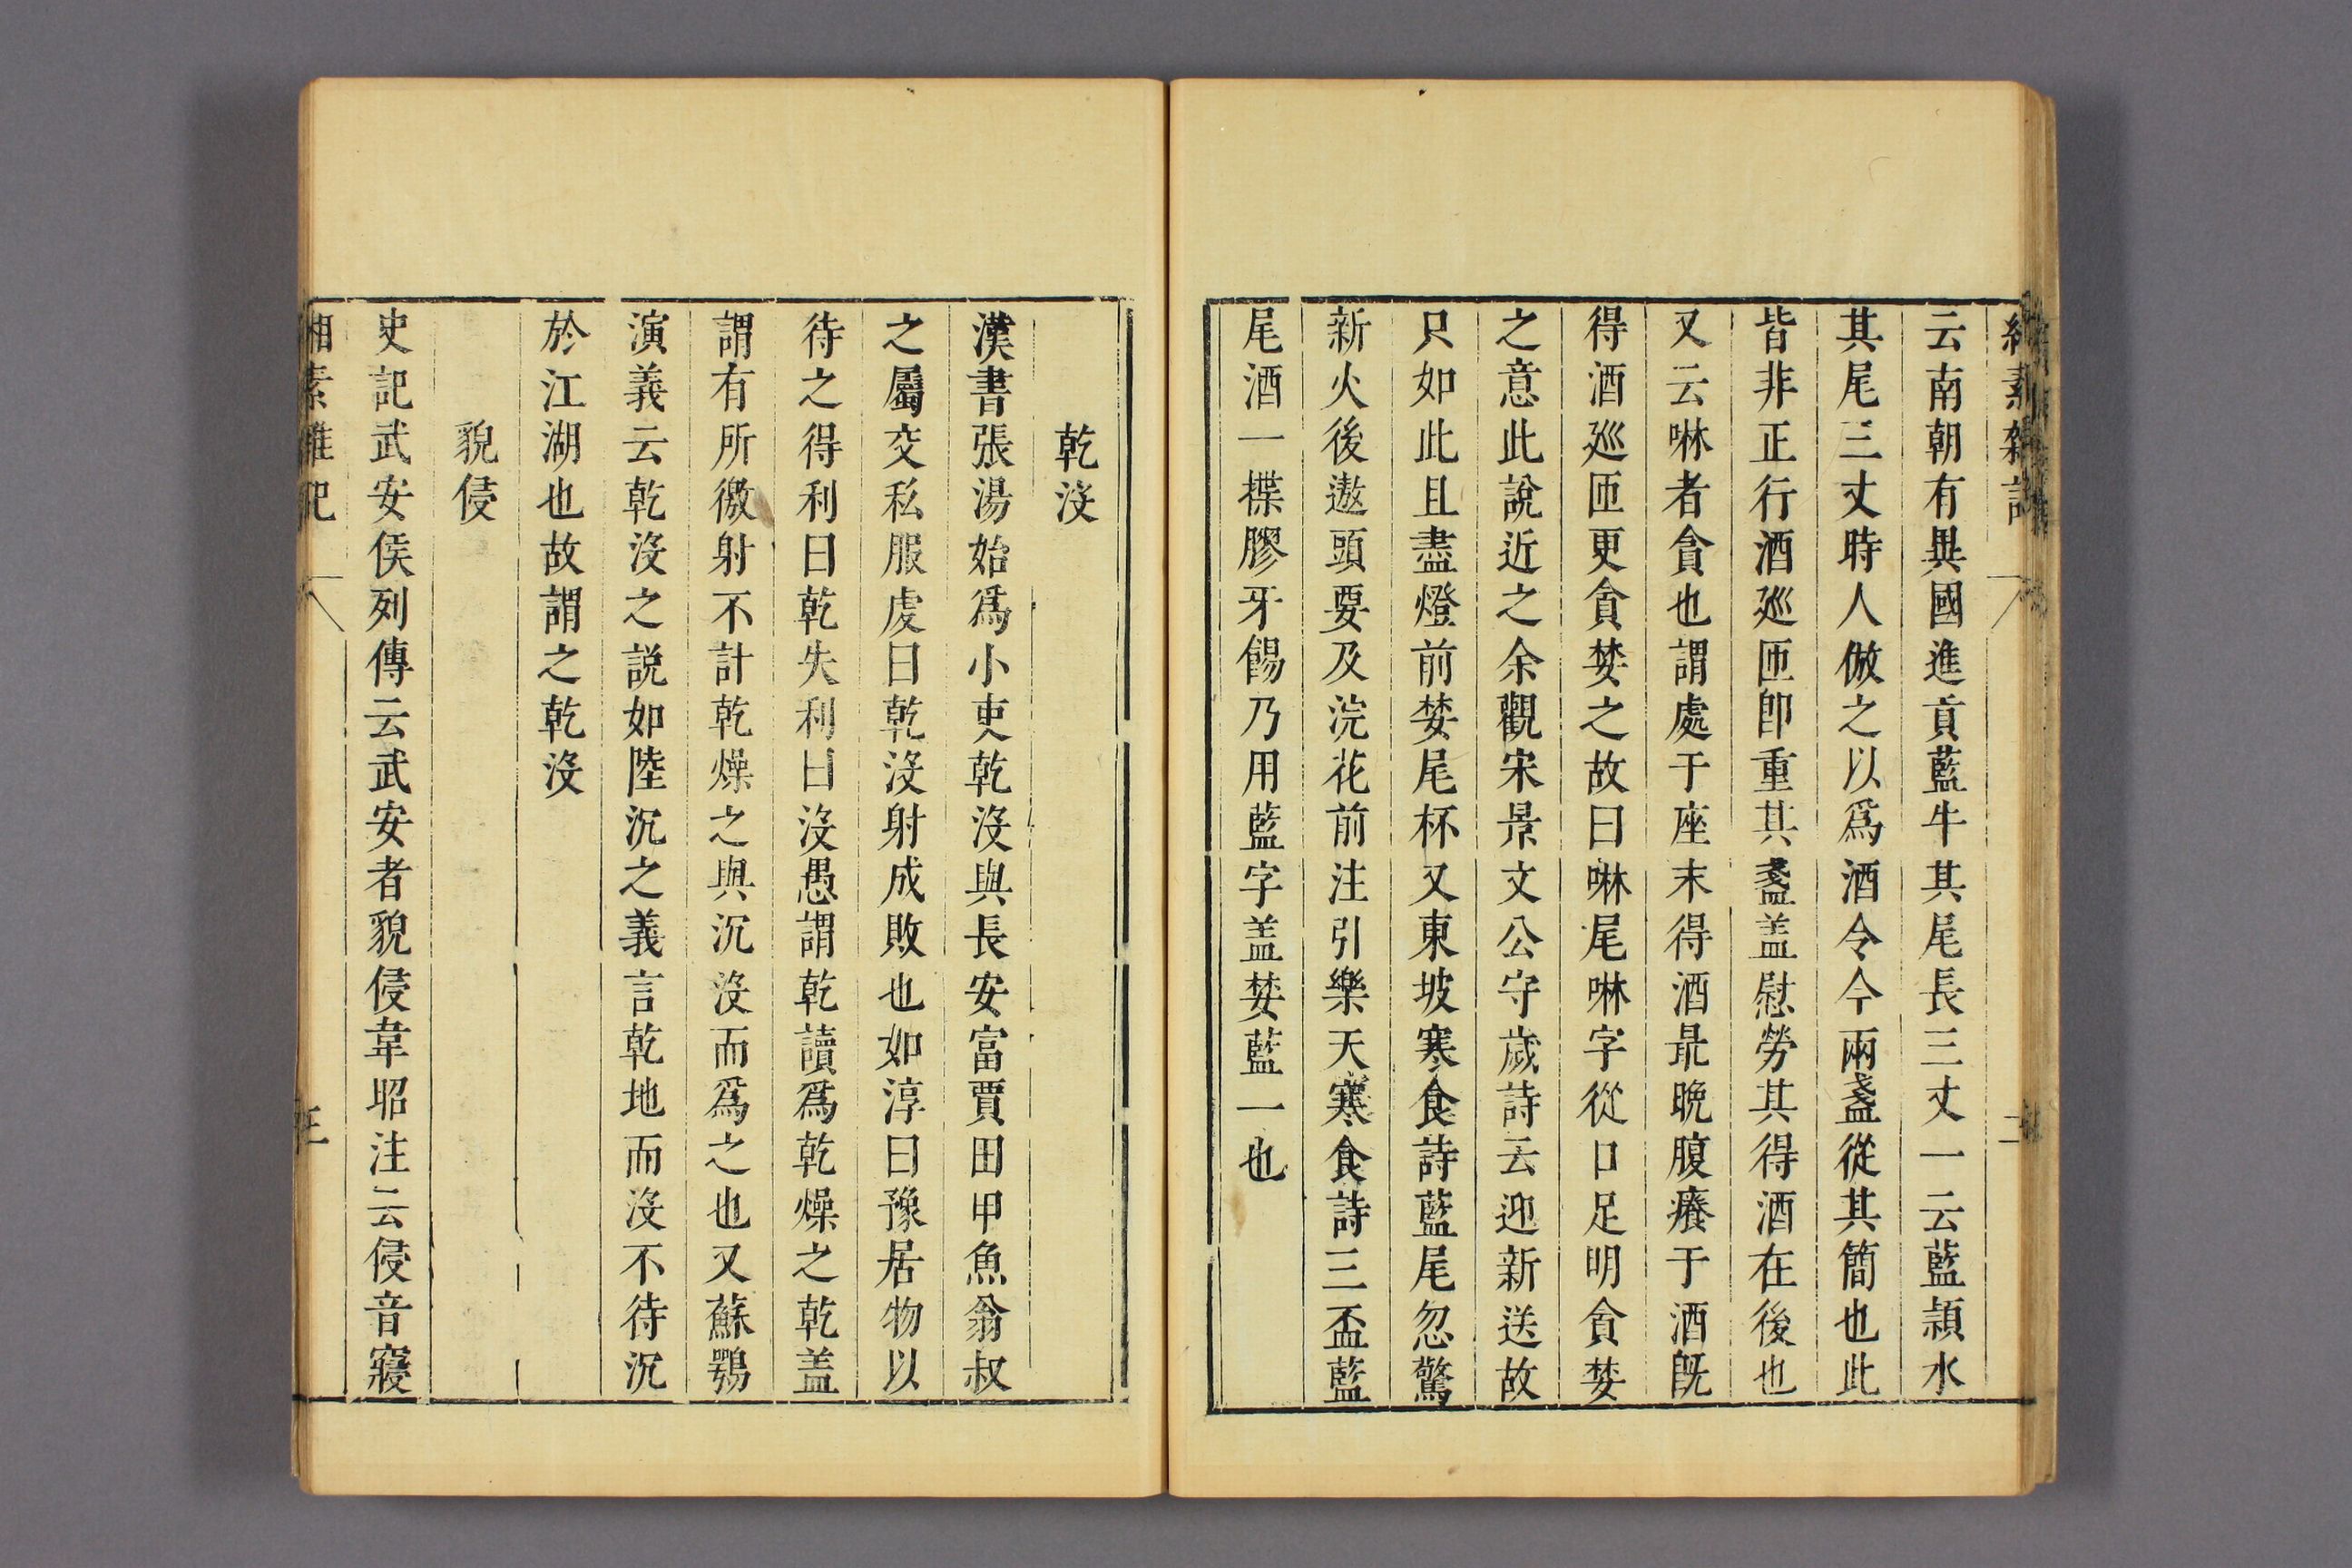 緗素雜記
二
云南朝有異國進貢藍牛其尾長三丈一云藍頴水
其尾三丈時人倣之以爲酒令今兩盞從其簡也此
皆非正行酒廵匝卽重其盞盖慰勞其得酒在後也
又云啉者貪也謂處于座末得酒最晩腹癢于酒旣
得酒廵匝更貪婪之故曰啉尾啉字從口足明貪婪
之意此說近之余觀宋景文公守歲詩云迎新送故
只如此且盡燈前婪尾杯又東坡寒食詩藍尾忽驚
新火後遨頭要及浣花前注引樂天寒食詩三盃藍
尾酒一楪膠牙餳乃用藍字盖婪藍一也
乾没
漢書張湯始爲小吏乾没與長安富賈田甲魚翁叔
之屬交私服虔曰乾没射成敗也如淳曰豫居物以
待之得利曰乾失利曰没愚謂乾讀爲乾燥之乾盖
謂有所徼射不計乾燥之與沉没而爲之也又蘇鶚
演義云乾没之説如陸沉之義言乾地而没不待沉
於江湖也故謂之乾没
貌侵
史記武安侯列傳云武安者貌侵韋昭注云侵音寢
緗素雜記
三